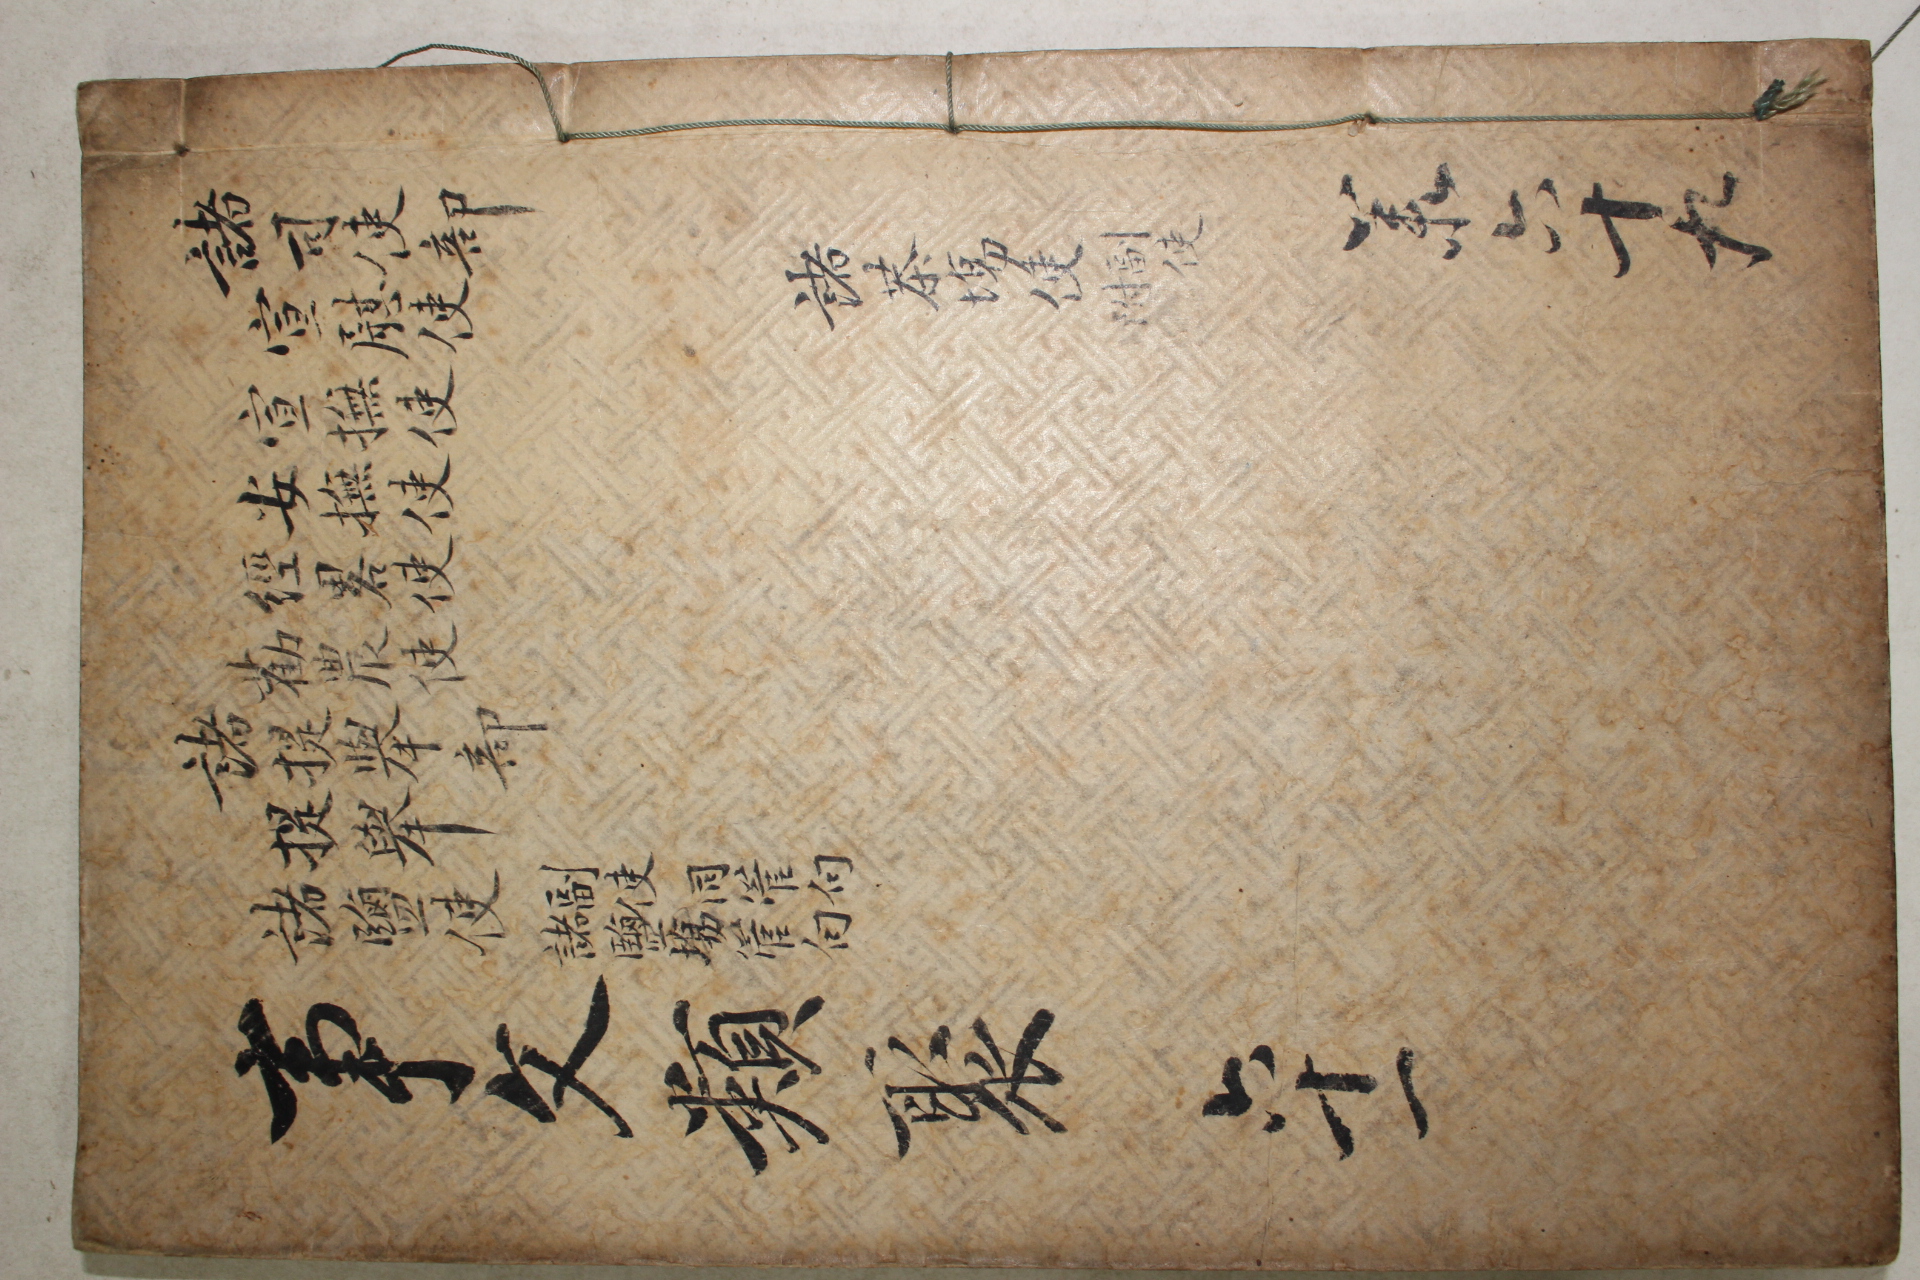 諸司使部
宣慰使
宣撫使
安撫使
經畧使
勸農使
諸提擧部
提擧
諸鹽使
副使 同管句
諸鹽場管句
諸茶場使
副使
附
事文類聚 六十一
六十九